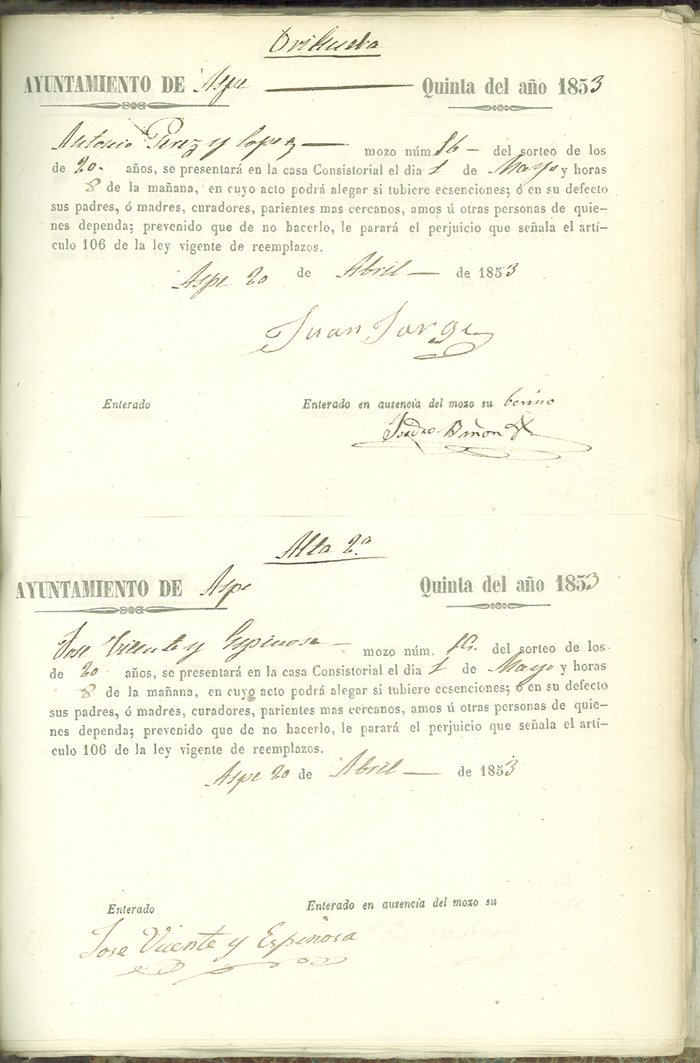 Orihuela
AYUNTAMIENTO DE Aspe Quinta del año 1853
Antonio Perez y Lopez mozo núm. 86 del sorteo de los
de 20 años, se presentará en la casa Consistorial el dia 1 de Mayo y horas
8 de la mañana, en cuyo acto podrá alegar si tubiere ecsenciones; ó en su defecto
sus padres, ó madres, curadores, parientes mas cercanos, amos ú otras personas de quie-
nes dependa; prevenido que de no hacerlo, le parará el perjuicio que señala el artí-
culo 106 de la ley vigente de reemplazos.
Aspe 20 de Abril de 1853
Juan Jorge
Enterado Enterado en ausencia del mozo su
Isidro
Alta 2.a
AYUNTAMIENTO DE Aspe Quinta del año 1853
Jose Vicente y Espinosa mozo núm. del sorteo de los
de 20 años, se presentará en la casa Consistorial el dia 1 de Mayo y horas
8 de la mañana, en cuyo acto podrá alegar si tubiere ecsenciones; ó en su defecto
sus padres, ó madres, curadores, parientes mas cercanos, amos ú otras personas de quie-
nes dependa; prevenido que de no hacerlo, le parará el perjuicio que señala el artí-
culo 106 de la ley vigente de reemplazos.
Aspe 20 de Abril de 1853
Enterado Enterado en ausencia del mozo su
Jose Vicente y Espinosa